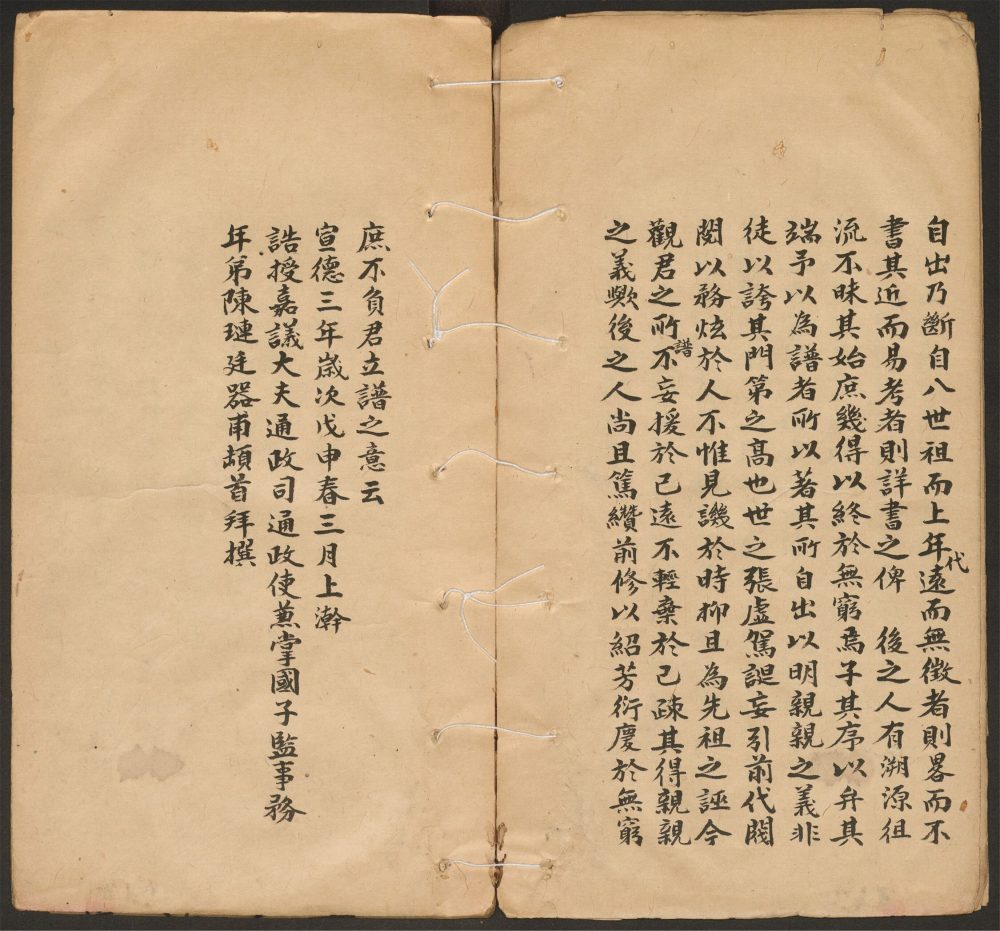 自出乃斷自八世祖而上年代遠而無徵者則畧而不
書其近而易考者則詳書之俾　後之人有溯源徂
流不昧其始庶幾得以終於無窮焉子其序以弁其
端予以為譜者所以著其所自出以明親親之義非
徒以誇其門第之高也世之張虛駕誕妄引前代閥
閱以務炫於人不惟見譏於時抑且為先祖之誣今
觀君之所譜不妄援於已遠不輕棄於已疎其得親親
之義歟後之人尚且篤纘前修以紹芳衍慶於無窮
庶不負君立譜之意云
宣德三年歲次戊申春三月上澣
誥授嘉議大夫通政司通政使兼掌國子監事務
年弟陳璉廷器甫頓首拜撰